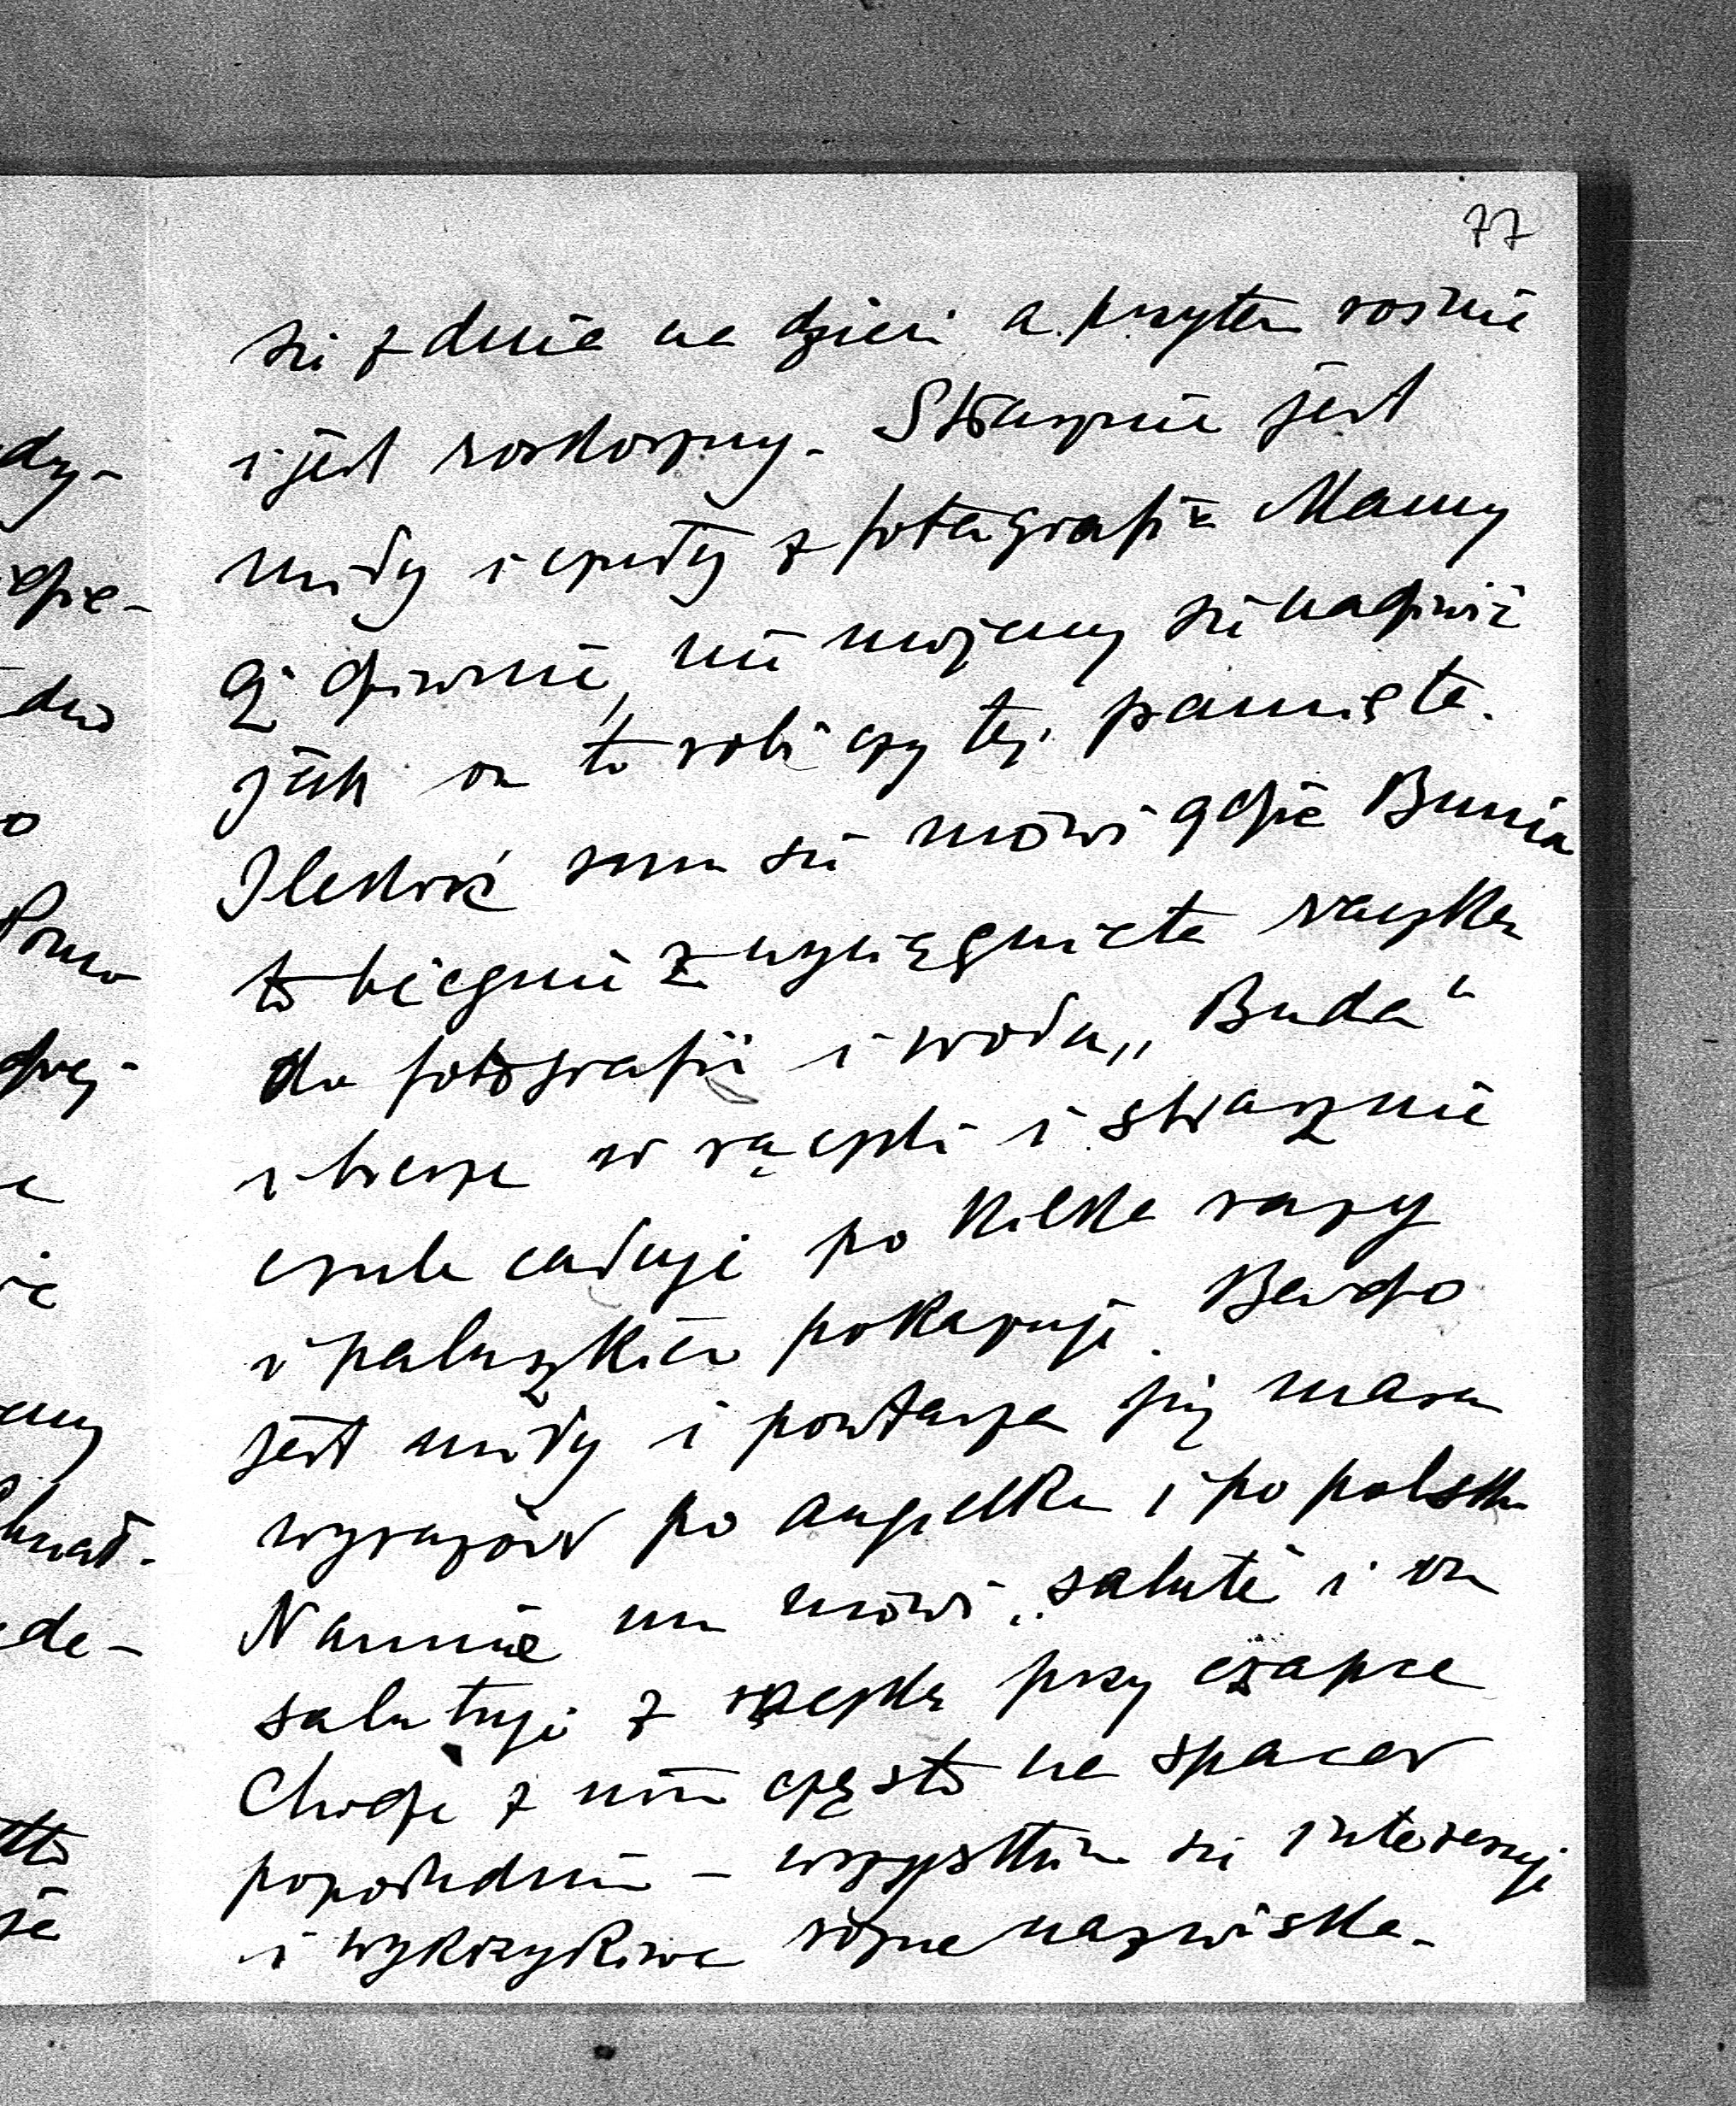 77
się z dnia na dzień a przytem rośnie
i jest rozkoszny. Strasznie jest
miły i czuły z fotografią Mamy
aż dziwnie, nie możemy się nadziwić
jak on to robi czy też pamięta.
Ilekroć mu się mówi gdzie Bunia
to biegnie z wyciągniętą rączką
do fotografii i woła „Buda"
i bierze w rączki i strasznie
czule całuje po kilka razy
i paluszkiem pokazuje. Bardzo
jest miły i powtarza już masę
wyrazów po angielsku i po polsku
Nannie mu mówi „salute i on
salutuje z rączką przy czapce
Chodzę z nim często na spacer
popołudniu – wszystkim się interesuje
i wykrzykiwa różne nazwiska.
dzy-
dzie-
dno
o
ie
de-